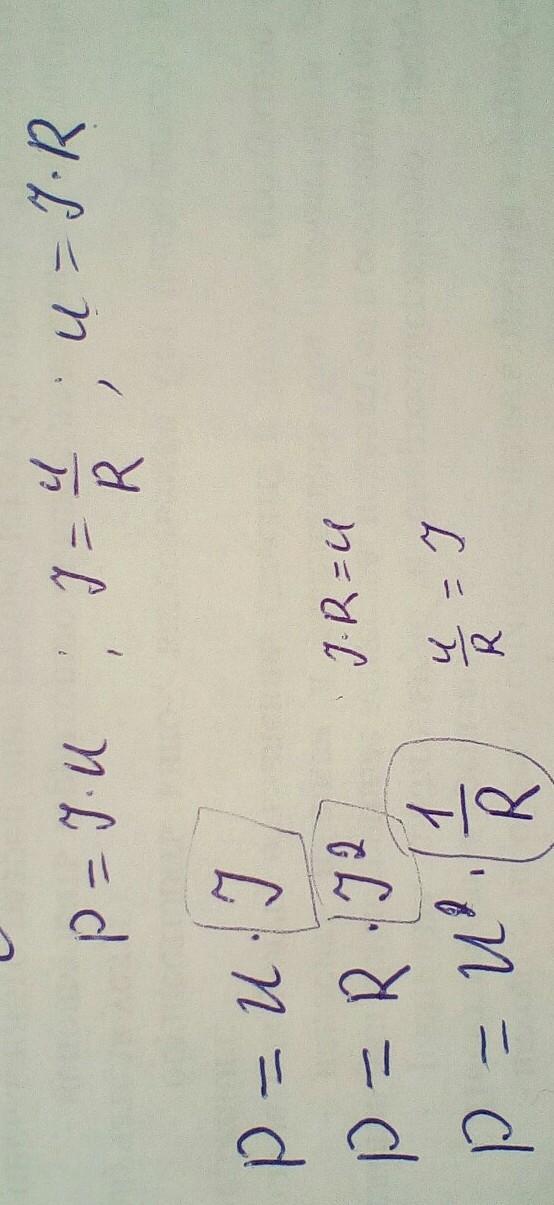 P = I·U ; I = U/R ; U = I·R
P = U · I
P = R · I² I·R = U
P = U² · 1/R U/R = I